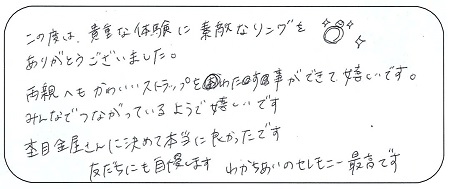 この度は、貴重な体験に素敵なリングを
ありがとうございました。
両親へもかわいいストラップをわたす事ができて嬉しいです。
みんなでつながっているようで嬉しいです
杢目金屋さんに決めて本当に良かったです
友だちにも自慢します わかちあいのセレモニー最高です